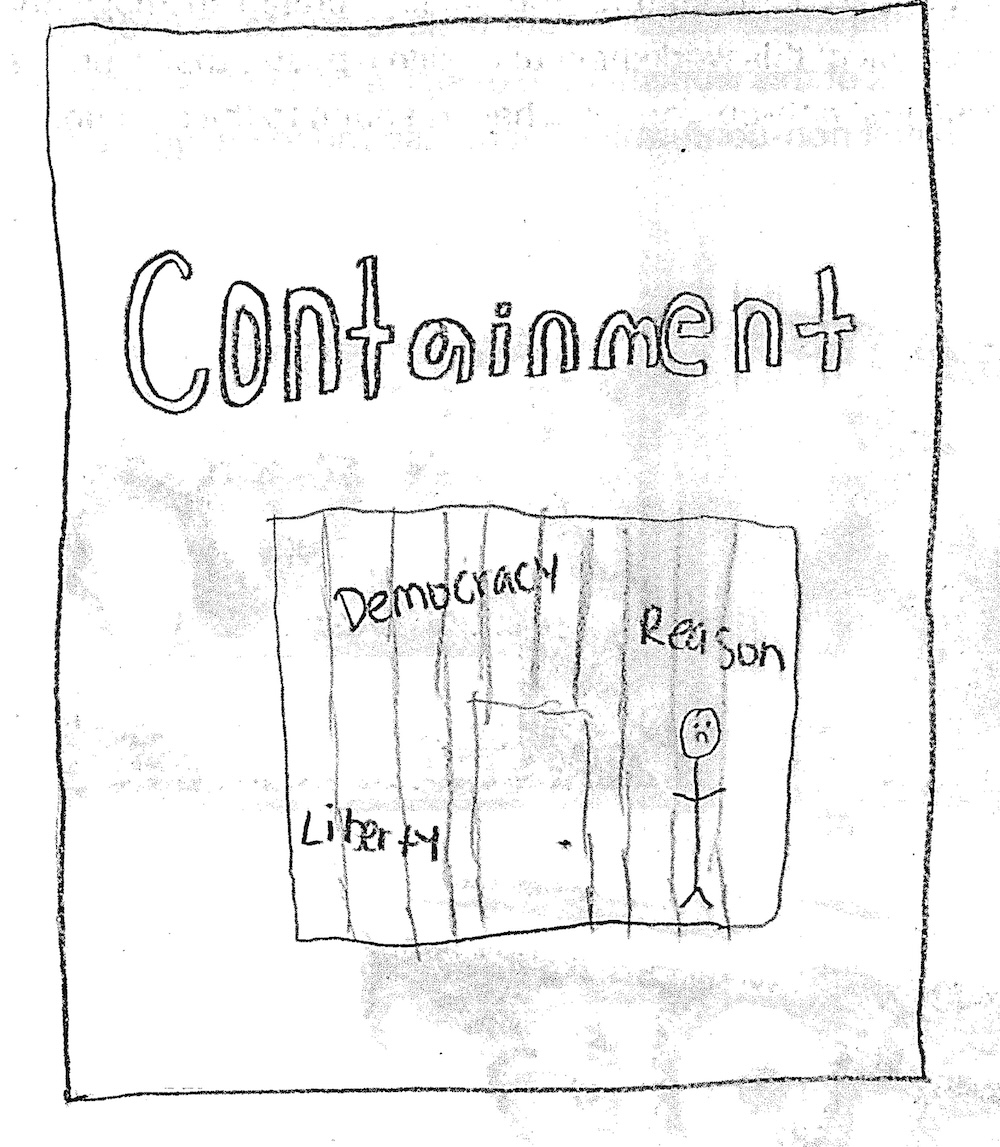 Containment
Democracy
Reason
Liberty